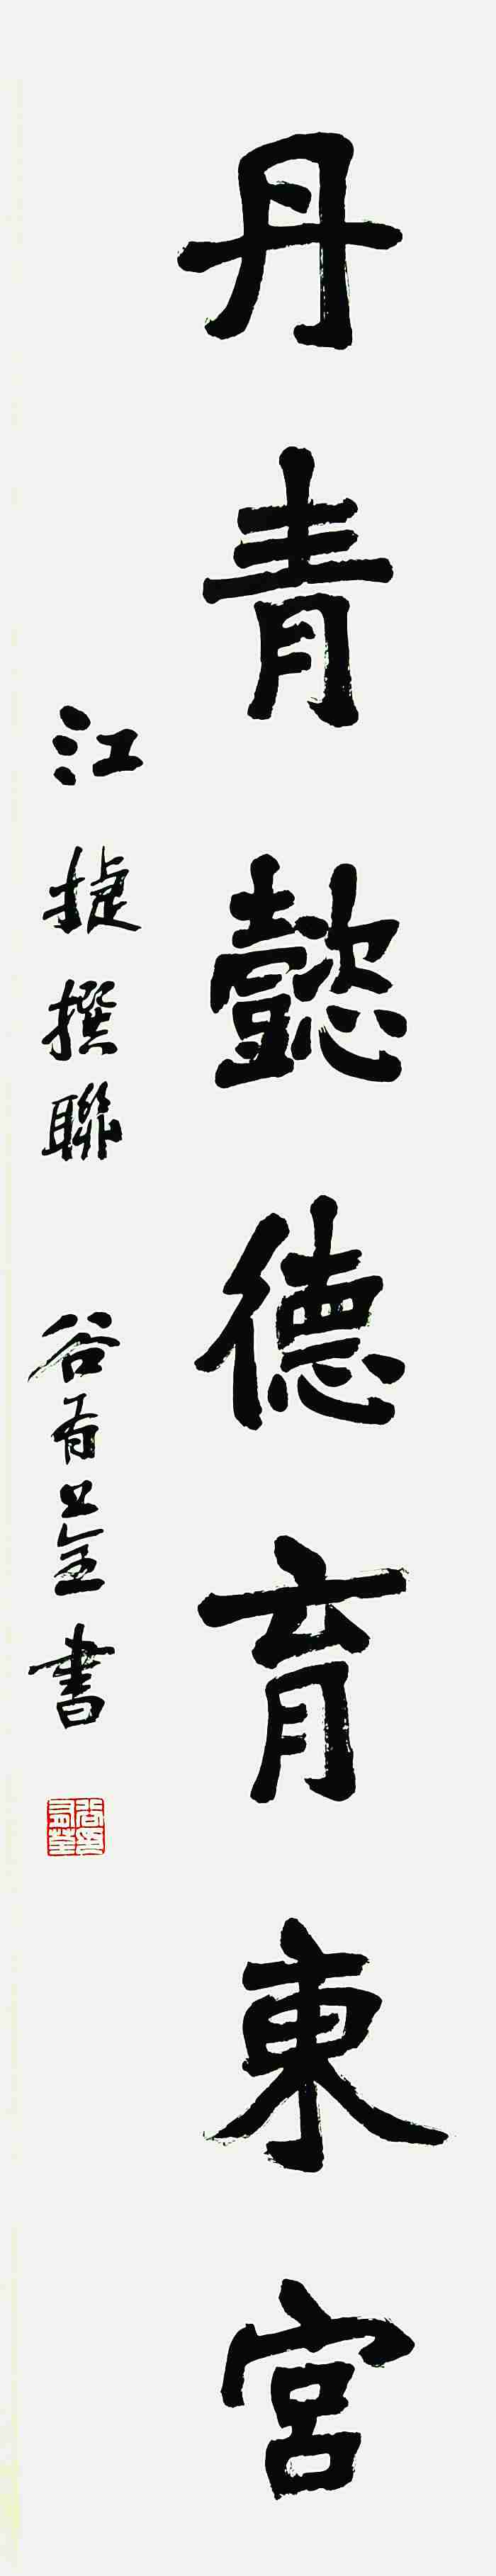 丹青懿德育東宮
江捷撰聯 谷有荃書